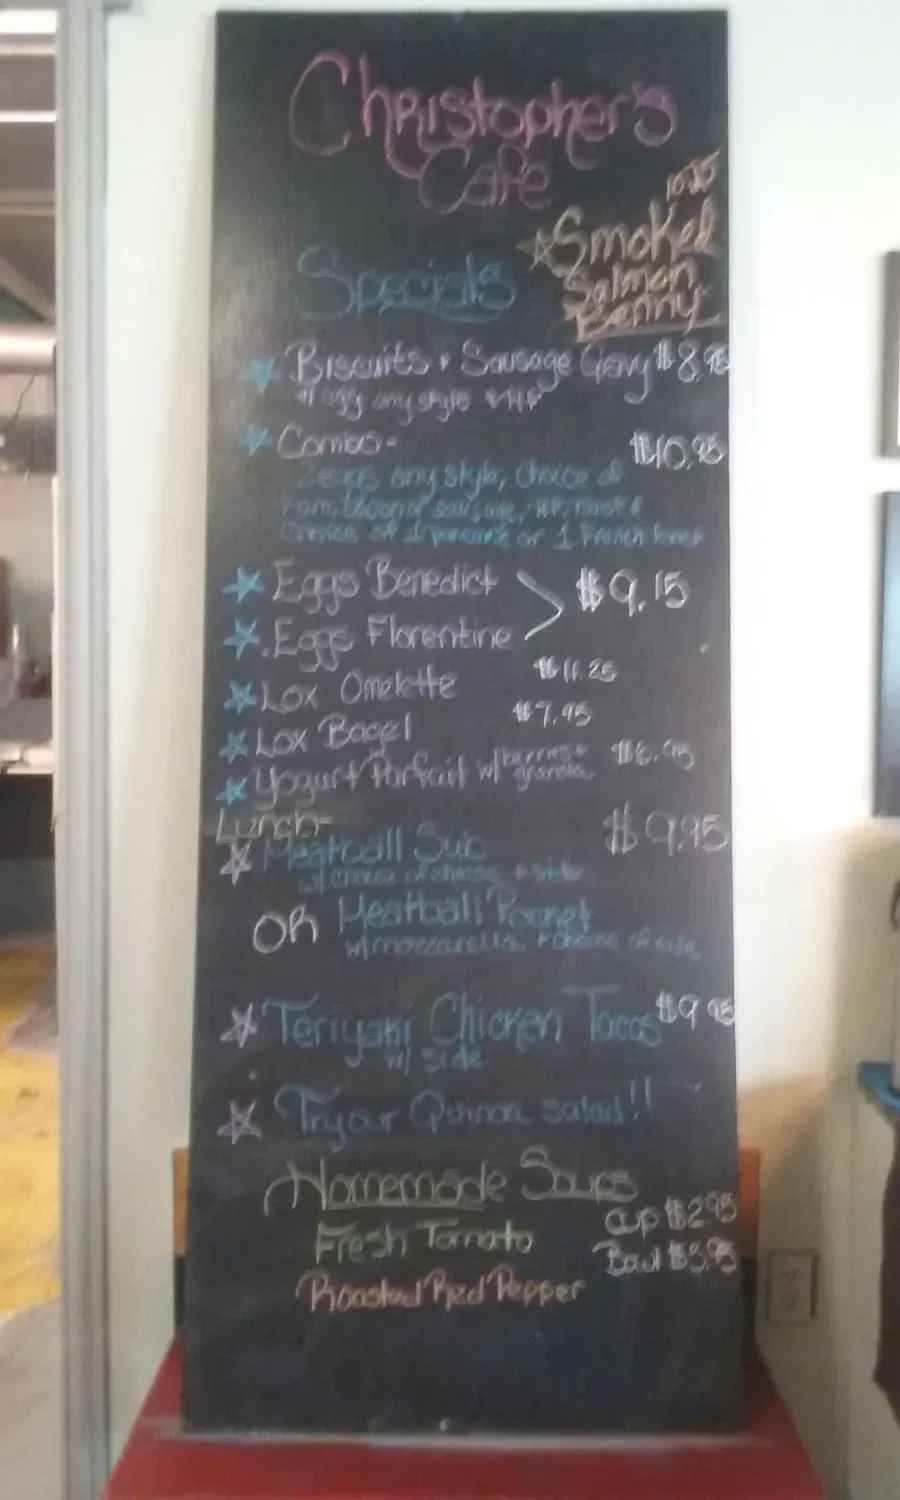 Christopher's
Café
10.25
Smoked
Salmon
Benny
Specials
Biscuits + Sausage Gravy $8.95
w/ egg any style + HF
Combo- $10.95
2 eggs any style, choice of
ham, bacon or sausage, HF, toast &
choice of 1 pancake or 1 French toast
Eggs Benedict $9.15
Eggs Florentine
Lox Omelette $11.25
Lox Bagel $7.95
Yogurt Parfait w/ berries + granola $6.95
Lunch-
Meatball Sub $9.95
w/ choice of cheese + side
OR Meatball Pocket
w/ moccarella + choice of side
Teriyaki Chicken Tacos $9.95
w/ side
Try our Quinoa salad!!
Homemade Soups
Fresh Tomato
cup $2.95
Bowl $3.95
Roasted Red Pepper